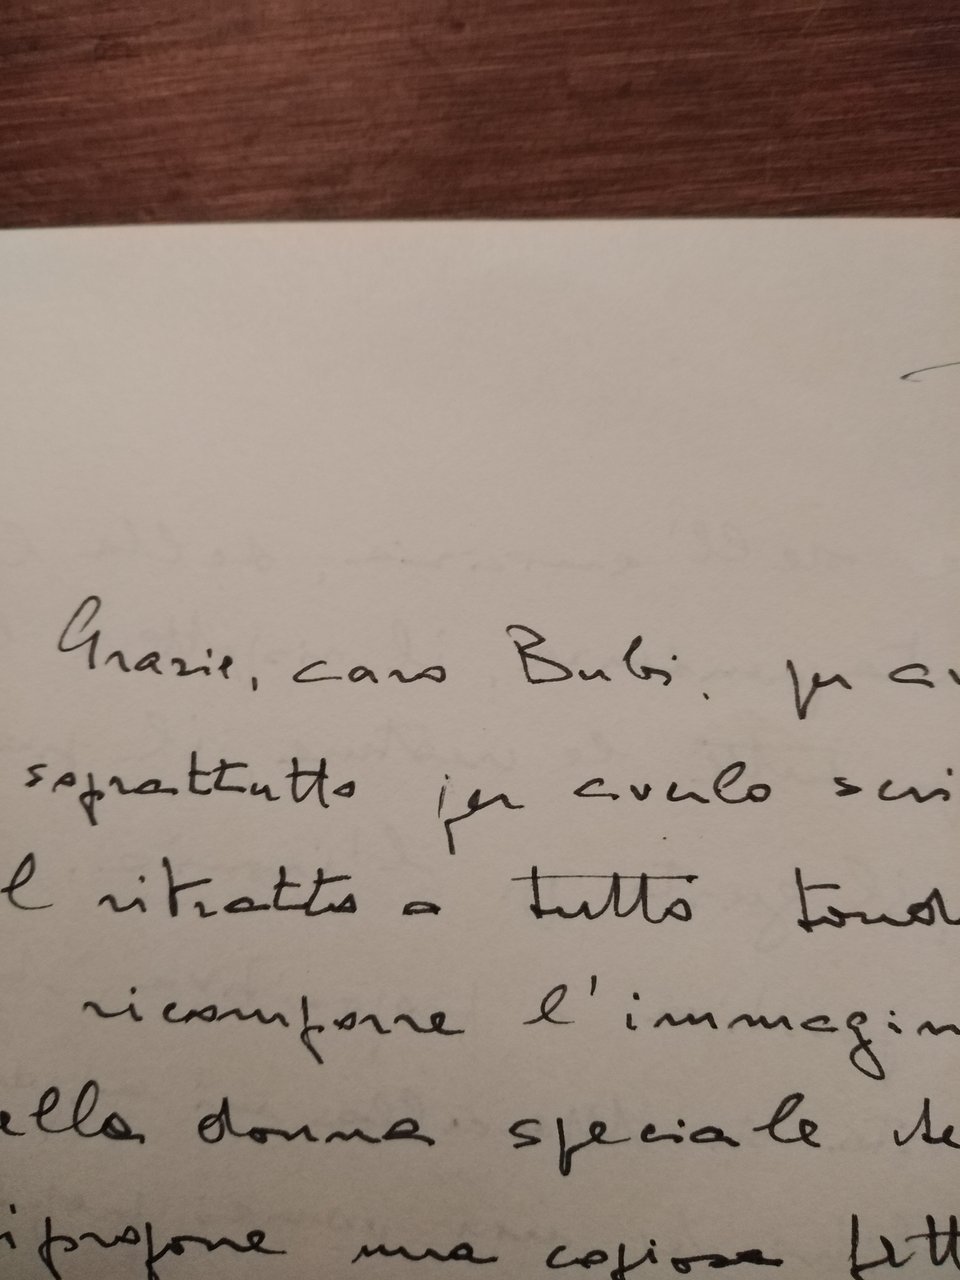 Grazie, caro Bubi, per av
soprattutto per averlo scri
l ritratto a tutto tond
ricomporre l'immagin
ella donna speciale
ipropone una copiosa fett